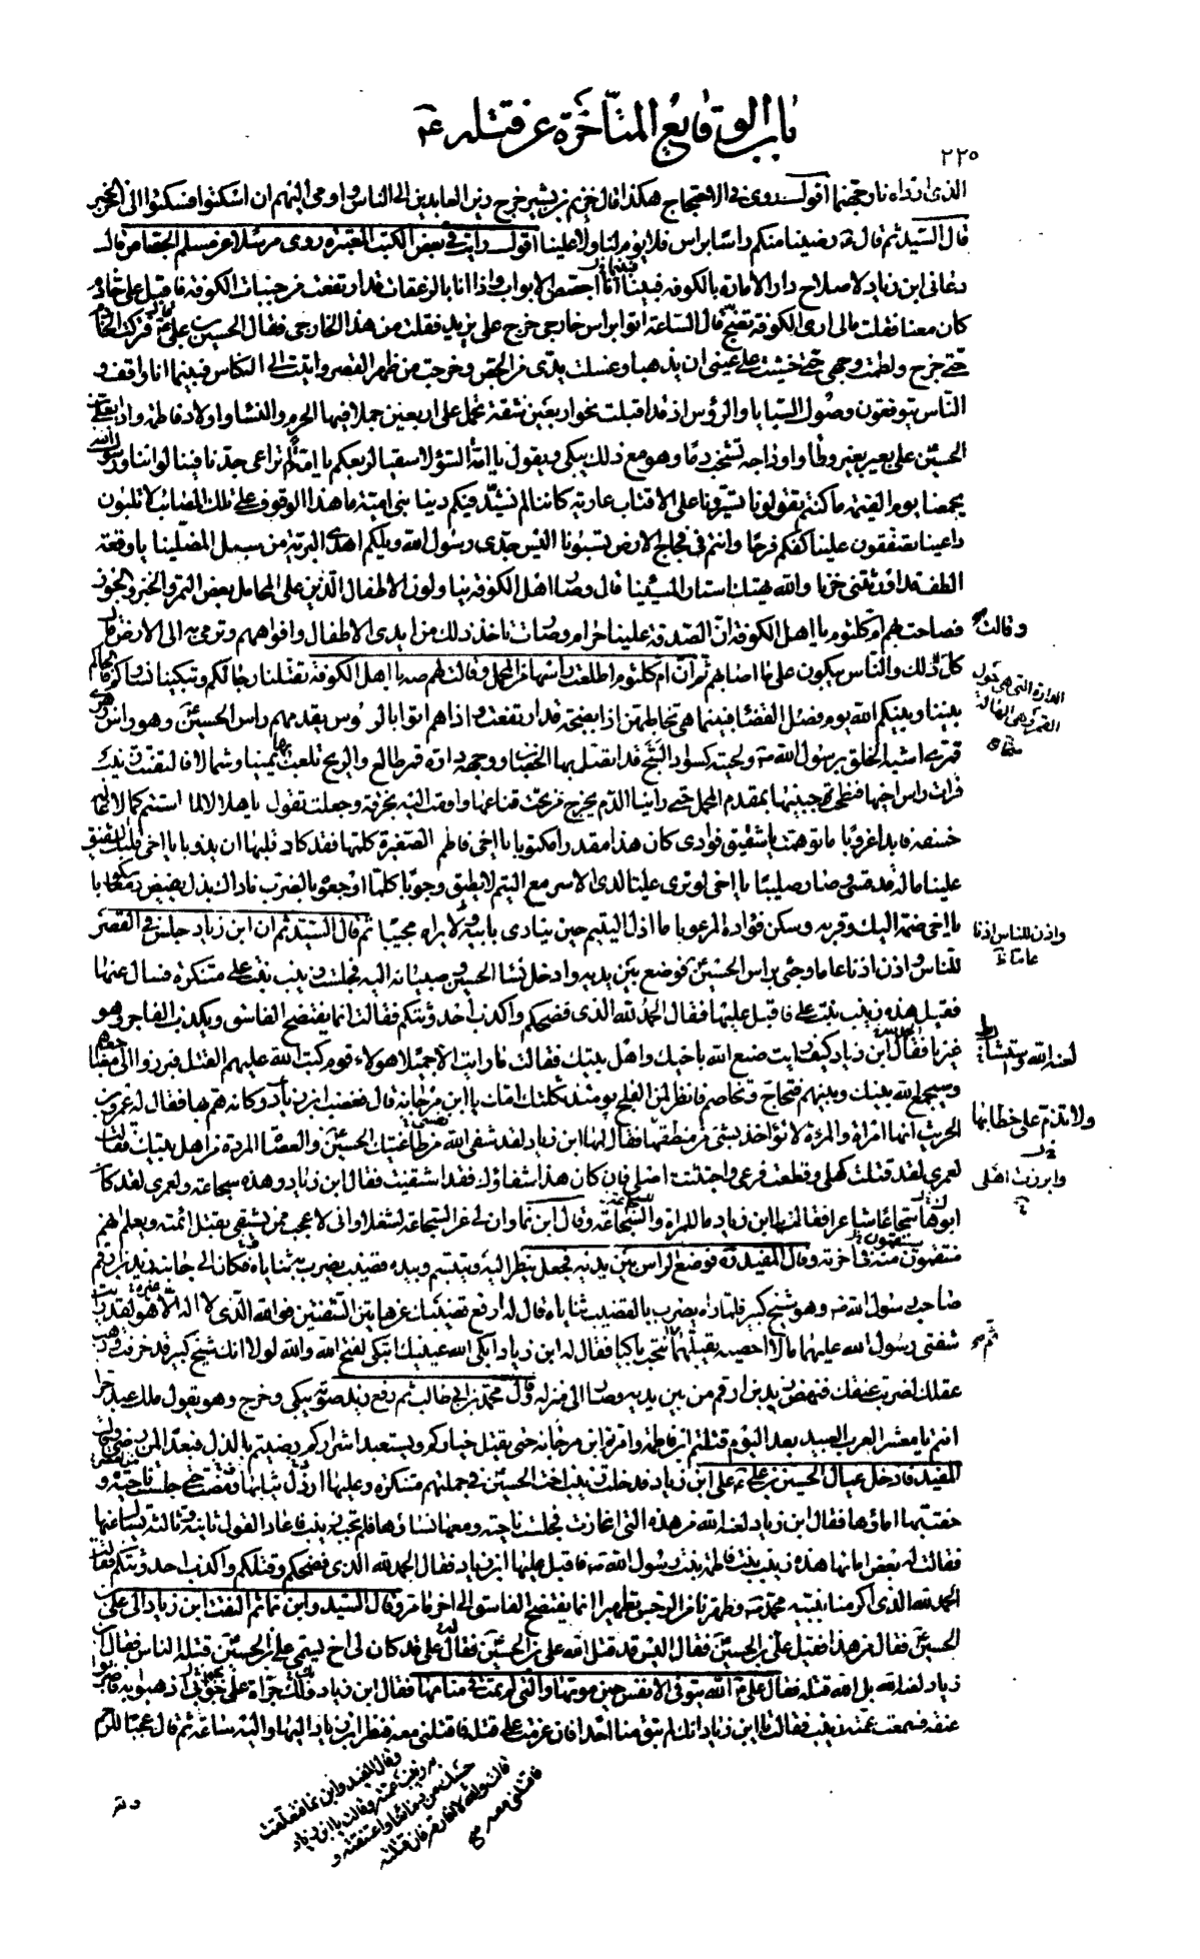 باب الوقايع المتأخرة عن قتله ع
٢٢٠
الذى اردناه ناوجهنا أقول روى فى الاحتجاج هكذا قال خزيم بن بشير خرج زين العابدين الى الناس و اومى اليهم ان اسكتوا فسكتوا الى اخر الخبر
قال السيد ثم قال ع رضينا منكم راسا براس فلا يوم لنا ولا علينا أقول رايت فى بعض الكتب المعتبرة روى مرسلا عن مسلم الجصاص قال
دعانى ابن زياد لاصلاح دار الامارة بالكوفة فبينما انا اجصص الابواب و اذا انا بالزعقات قد ارتفعت من جنبات الكوفة فاقبل على خادم
كان معنا فقلت مالى ارى الكوفة تضج قال الساعة اتوا براس خارجى خرج على يزيد فقلت من هذا الخارجى فقال الحسين بن على ع قال فتركت الخادم
حتى خرج ولطمت وجهى حتى خشيت على عينى ان يذهبا وغسلت يدى من الجص وخرجت من ظهر القصر واتيت الى الكناس فبينما انا واقف و
الناس يتوقعون وصول السبايا والرؤس اذ قد اقبلت نحو اربعين شقة تحمل على اربعين جملا فيها الحرم والنساء واولاد فاطمة واذا بعلى بن
الحسين على بعير بغير وطاء واوداجه تشخب دما وهو مع ذلك يبكى ويقول يا امة السوء لا سقيا لربعكم يا امة لم تراعى جدنا فينا لو اننا ورسول الله
يجمعنا يوم القيمة ما كنتم تقولونا تسيرونا على الاقتاب عارية كاننا لم نشيد فيكم دينا بنى امية ما هذا الوقوف على تلك المصائب لا تلبون
داعينا تصفقون علينا كفكم فرحا وانتم فى فجاج الارض تسبونا اليس جدى رسول الله ويلكم اهدى البرية من سبل المضلينا يا وقعة
الطف قد اورثتنى حزنا والله يهتك استار المسيئينا قال وصار اهل الكوفة يناولون الاطفال الذين على المحامل بعض التمر والخبز والجوز
فصاحت بهم ام كلثوم يا اهل الكوفة ان الصدقة علينا حرام وصارت تاخذ ذلك من ايدى الاطفال وافواههم وترمى به الى الارض قال
كل ذلك والناس يبكون على ما اصابهم ثم ان ام كلثوم اطلعت راسها من المحمل وقالت لهم صه يا اهل الكوفة تقتلنا رجالكم وتبكينا نساؤكم فالحاكم
بيننا وبينكم الله يوم فصل القضاء فبينما هى تخاطبهن اذا بضجة قد ارتفعت و اذا هم اتوا بالرؤس يقدمهم راس الحسين ع وهو راس زهرى
قمرى اشبه الخلق برسول الله ص ولحيته كسواد السبج قد اتصل بها الخضاب ووجهه دارة قمر طالع والريح تلعب بها يمينا وشمالا فالتفتت زينب
فرات راس اخيها فنطحت جبينها بمقدم المحمل حتى راينا الدم يخرج من تحت قناعها واومت اليه بخرقة وجعلت تقول يا هلالا لما استتم كمالا غاله
خسفه فابدا غروبا ما توهمت يا شقيق فؤادى كان هذا مقدرا مكتوبا يا اخى فاطم الصغيرة كلمها فقد كاد قلبها ان يذوبا يا اخى قلبك الشفيق
علينا ماله قد قسى وصار صليبا يا اخى لو ترى عليا لدى الاسر مع اليتم لا يطيق وجوبا كلما اوجعوه بالضرب ناداك بذل يفيض دمعا سكوبا
يا اخى ضمه اليك وقربه وسكن فؤاده المرعوبا ما اذل اليتيم حين ينادى بابيه ولا يراه مجيبا ثم قال السيد ثم ان ابن زياد جلس فى القصر
للناس واذن اذنا عاما وجئ براس الحسين ع فوضع بين يديه وادخل نساء الحسين وصبيانه اليه فجلست زينب بنت على متنكرة فسال عنها
فقيل هذه زينب بنت على فاقبل عليها فقال الحمد لله الذى فضحكم واكذب احدوثتكم فقالت انما يفتضح الفاسق ويكذب الفاجر وهو
غيرنا فقال ابن زياد كيف رايت صنع الله باخيك واهل بيتك فقالت ما رايت الا جميلا هؤلاء قوم كتب الله عليهم القتل فبرزوا الى مضاجعهم
وسيجمع الله بينك وبينهم فتحاج وتخاصم فانظر لمن الفلج يومئذ ثكلتك امك يا ابن مرجانة قال فغضب ابن زياد وكانه هم بها فقال له عمرو بن
الحريث انها امراة والمراة لا تؤاخذ بشئ من منطقها فقال لها ابن زياد لقد شفى الله نفسى من طاغيتك الحسين ع والعصاة المردة من اهل بيتك فقالت
لعمرى لقد قتلت كهلى وقطعت فرعى واجتثثت اصلى فان كان هذا شفاؤك فقد اشتفيت فقال ابن زياد هذه سجاعة ولعمرى لقد كان
ابوها سجاعا شاعرا فقالت يا ابن زياد ما للمراة والسجاعة وقال ابن نما وان لى عن السجاعة لشغلا وانى لاعجب ممن يشتفى بقتل ائمته ويعلم انهم
منتقمون منه فى اخرته وقال المفيد ره فوضع الراس بين يديه فجعل ينظر اليه ويتبسم وبيده قضيب يضرب به ثناياه وكان الى جانبه زيد بن ارقم
صاحب رسول الله ص وهو شيخ كبير فلما راه يضرب بالقضيب ثناياه قال له ارفع قضيبك عن هاتين الشفتين فوالله الذى لا اله الا هو لقد رايت
شفتى رسول الله عليهما ما لا احصيه يقبلهما ثم انتحب باكيا فقال له ابن زياد ابكى الله عينيك اتبكى لفتح الله والله لولا انك شيخ كبير قد خرفت وذهب
عقلك لضربت عنقك فنهض زيد بن ارقم من بين يديه وصار الى منزله وقال محمد بن ابى طالب ثم رفع زيد صوته يبكى وخرج وهو يقول ملك عبد حرا
انتم يا معشر العرب العبيد بعد اليوم قتلتم ابن فاطمة وامرتم ابن مرجانة حتى يقتل خياركم ويستعبد اشراركم رضيتم بالذل فبعدا لمن رضى وقال
المفيد فادخل عيال الحسين بن على ع على ابن زياد فدخلت زينب اخت الحسين ع فى جملتهم متنكرة وعليها ارذل ثيابها ومضت حتى جلست ناحية و
حفت بها اماؤها فقال ابن زياد لعنه الله من هذه التى انحازت فجلست ناحية ومعها نساؤها فلم تجبه زينب فاعاد القول ثانية وثالثة يسال عنها
فقالت له بعض امائها هذه زينب بنت فاطمة بنت رسول الله ص فاقبل عليها ابن زياد فقال الحمد لله الذى فضحكم وقتلكم واكذب احدوثتكم فقالت
الحمد لله الذى اكرمنا بنبيه محمد ص وطهرنا من الرجس تطهيرا انما يفتضح الفاسق الى اخر ما مر وقال السيد وابن نما ثم التفت ابن زياد الى على بن
الحسين ع فقال من هذا فقيل على بن الحسين ع فقال اليس قد قتل الله على بن الحسين ع فقال على قد كان لى اخ يسمى على بن الحسين ع قتله الناس فقال ابن
زياد لعنه الله بل الله قتله فقال على ع الله يتوفى الانفس حين موتها والتى لم تمت فى منامها فقال ابن زياد ولك جراة على جوابى اذهبوا به فاضربوا
عنقه فسمعت عمته زينب فقالت يا ابن زياد انك لم تبق منا احدا فان عزمت على قتله فاقتلنى معه فنظر ابن زياد اليها واليه ساعة ثم قال عجبا للرحم
وقالت
الدارة التى هى حول
القمر وهى الهالة
واذن للناس اذنا
عاما خ
لعنه الله
ولا تذم على خطابها
وابرزت اهلى
ثم
وقال المفيد وابن نما فتعلقت
به زينب عمته وقالت يا ابن زياد
حسبك من دمائنا واعتنقته و
قالت والله لا افارقه فان قتلته
فاقتلنى معه